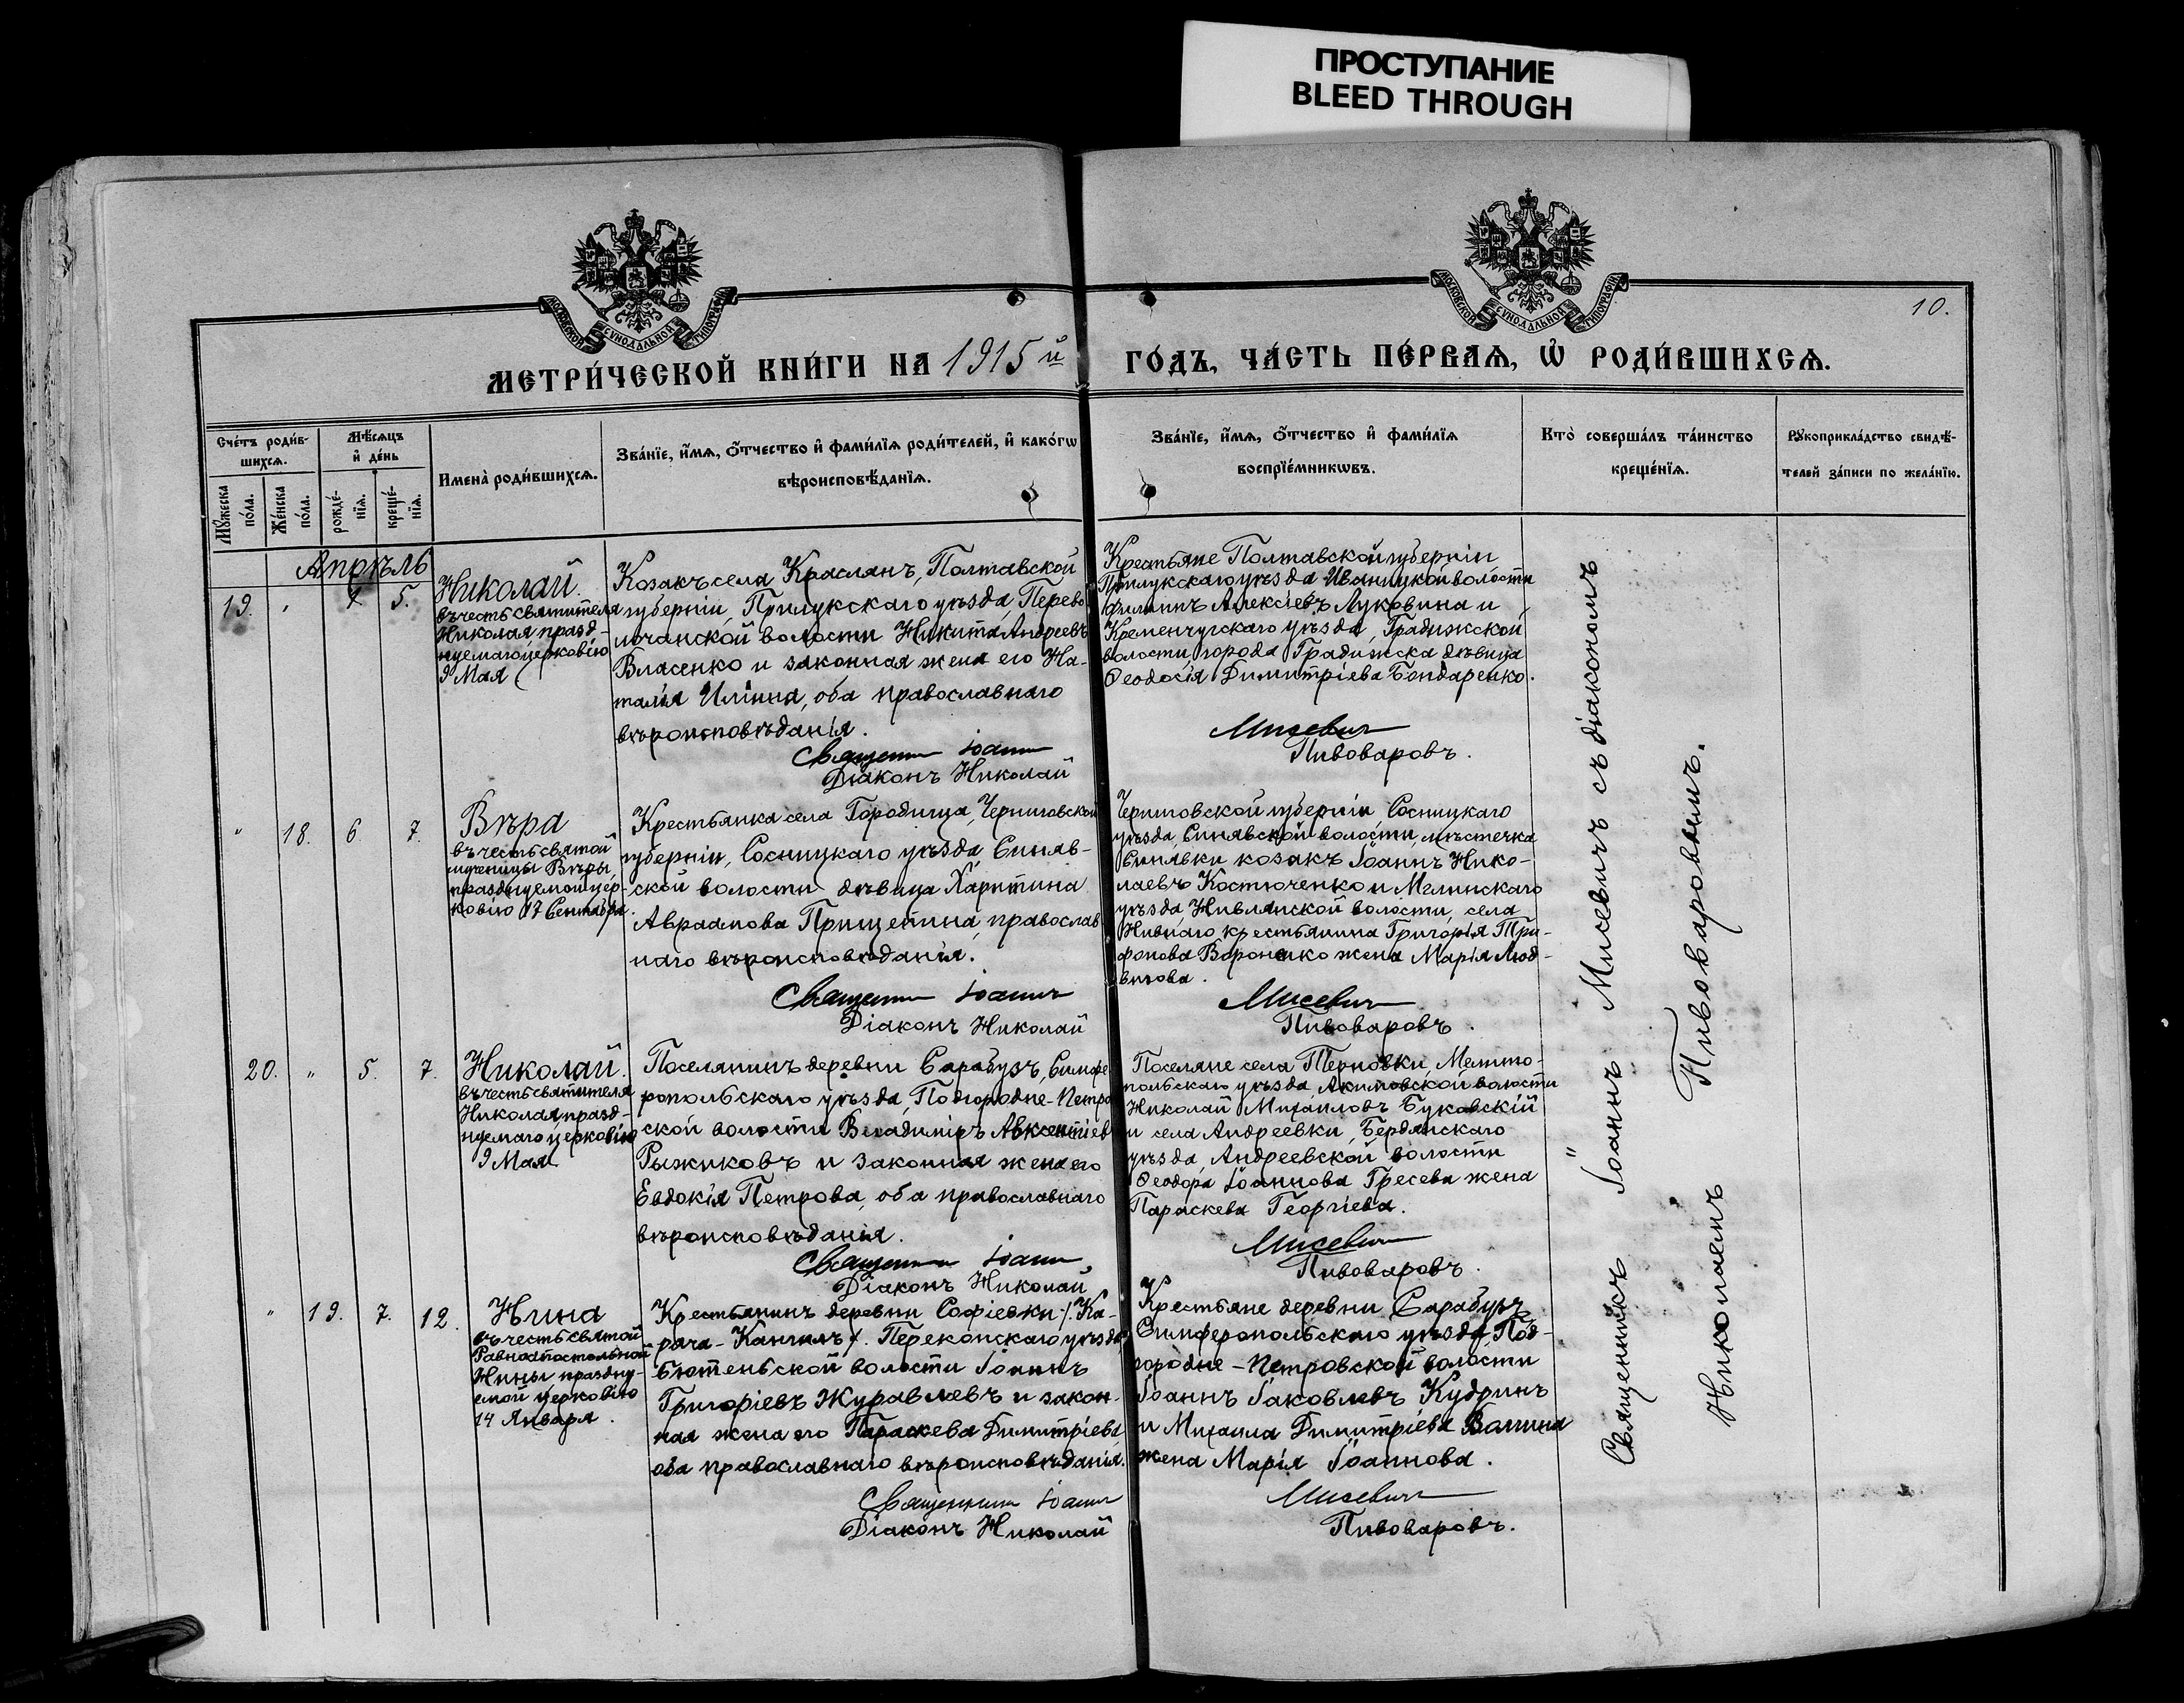 ПРОСТУПАНИЕ
BLEED THROUGH
МОСКОВСКОЙ СѴНОДАЛЬНОЙ ТИПОГРАФІИ
МОСКОВСКОЙ СѴНОДАЛЬНОЙ ТИПОГРАФІИ
10.
МЕТРИ́ЧЕСКОЙ КНИ́ГИ НА 1915й ГО́ДЪ, ЧА́СТЬ ПЕ́РВАѦ, Ѽ РОДИ́ВШИХСѦ.
Сче́тъ роди́в-
шихсѧ.
Мѣ́сѧцъ
и҆ де́нь
Мꙋ́жеска
по́ла.
Же́нска
по́ла.
рожде́-
нїѧ.
креще́-
нїѧ.
И҆мена̀ роди́вшихсѧ.
Зва́нїе, и҆́мѧ, ѻ҆́тчество и҆ фами́лїѧ роди́телей, и҆ како́гѡ
вѣроисповѣ́данїѧ.
Зва́нїе, и҆́мѧ, ѻ҆́тчество и҆ фами́лїѧ
воспрїе́мникѡвъ.
Кто̀ соверша́лъ та́инство
креще́нїѧ.
Рꙋкоприкла́дство свидѣ́-
телей за́писи по жела́нїю.
Апрѣль
19.
"
5.
Николай.
въ честь святителя
Николая празд-
нуемаго церковію
9 Мая
Козакъ села Краслянъ, Полтавской
губерніи, Прилукскаго уѣзда, Перево-
лочанской волости Никита Андреевъ
Власенко и законная жена его На-
талія Иліина, оба православнаго
вѣроисповѣданія.
Священникъ Іоаннъ
Діаконъ Николай
Крестьяне Полтавской губерніи
Прилукскаго уѣзда Иваницкой волости
Филиппъ Алексіевъ Луковина и
Кременчугскаго уѣзда, Градижской
волости города Градижска дѣвица
Ѳеодосія Димитріева Бондаренко.
Мисевичъ
Пивоваровъ.
"
18.
6
7
Вѣра
въ честь святой
мученицы Вѣры,
празднуемой цер-
ковію 17 Сентября.
Крестьянка села Городища, Черниговской
губерніи, Сосницкаго уѣзда Синяв-
ской волости дѣвица Харитина
Авраамова Прищепина, православ-
наго вѣроисповѣданія.
Священникъ Іоаннъ
Діаконъ Николай
Черниговской губерніи, Сосницкаго
уѣзда, Синявской волости, мѣстечка
Синявки козакъ Іоаннъ Нико-
лаевъ Костюченко и Мглинскаго
уѣзда, Нивлянской волости, села
Нивнаго крестьянина Григорія Три-
фонова Воронько жена Марія Люд-
вигова.
Мисевичъ
Пивоваровъ.
20.
"
5.
7.
Николай.
въ честь святителя
Николая, празд-
нуемаго церковію
9 Мая
Поселянинъ деревни Сарабузъ, Симфе-
ропольскаго уѣзда, Подгородне-Петров-
ской волости Владиміръ Авксентіевъ
Рыжиковъ и законная жена его
Евдокія Петрова, оба православнаго
вѣроисповѣданія.
Священникъ Іоаннъ
Діаконъ Николай
Поселяне села Терновки, Мелито-
польскаго уѣзда, Акимовской волости
Николай Михаиловъ Буковскій
и села Андреевки, Бердянскаго
уѣзда, Андреевской волости
Ѳеодора Іоаннова Гресева жена
Параскева Георгіева.
Мисевичъ
Пивоваровъ.
"
19.
7.
12.
Нина
въ честь святой
Равноапостольной
Нины, праздну-
емой церковію
14 Января.
Крестьянинъ деревни Софіевки /. Ка-
рача-Кангилъ /. Перекопскаго уѣзда
Бютеньской волости Іоаннъ
Григоріевъ Журавлевъ и закон-
ная жена его Параскева Димитріева,
оба православнаго вѣроисповѣданія.
Священникъ Іоаннъ
Діаконъ Николай
Крестьяне деревни Сарабузъ
Симферопольскаго уѣзда, Под-
городне-Петровской волости
Іоаннъ Іаковлевъ Кудринъ
и Михаила Димитріева
жена Марія Іоаннова.
Мисевичъ
Пивоваровъ.
Священникъ Іоаннъ Мисевичъ съ діакономъ
Николаемъ Пивоваровымъ.